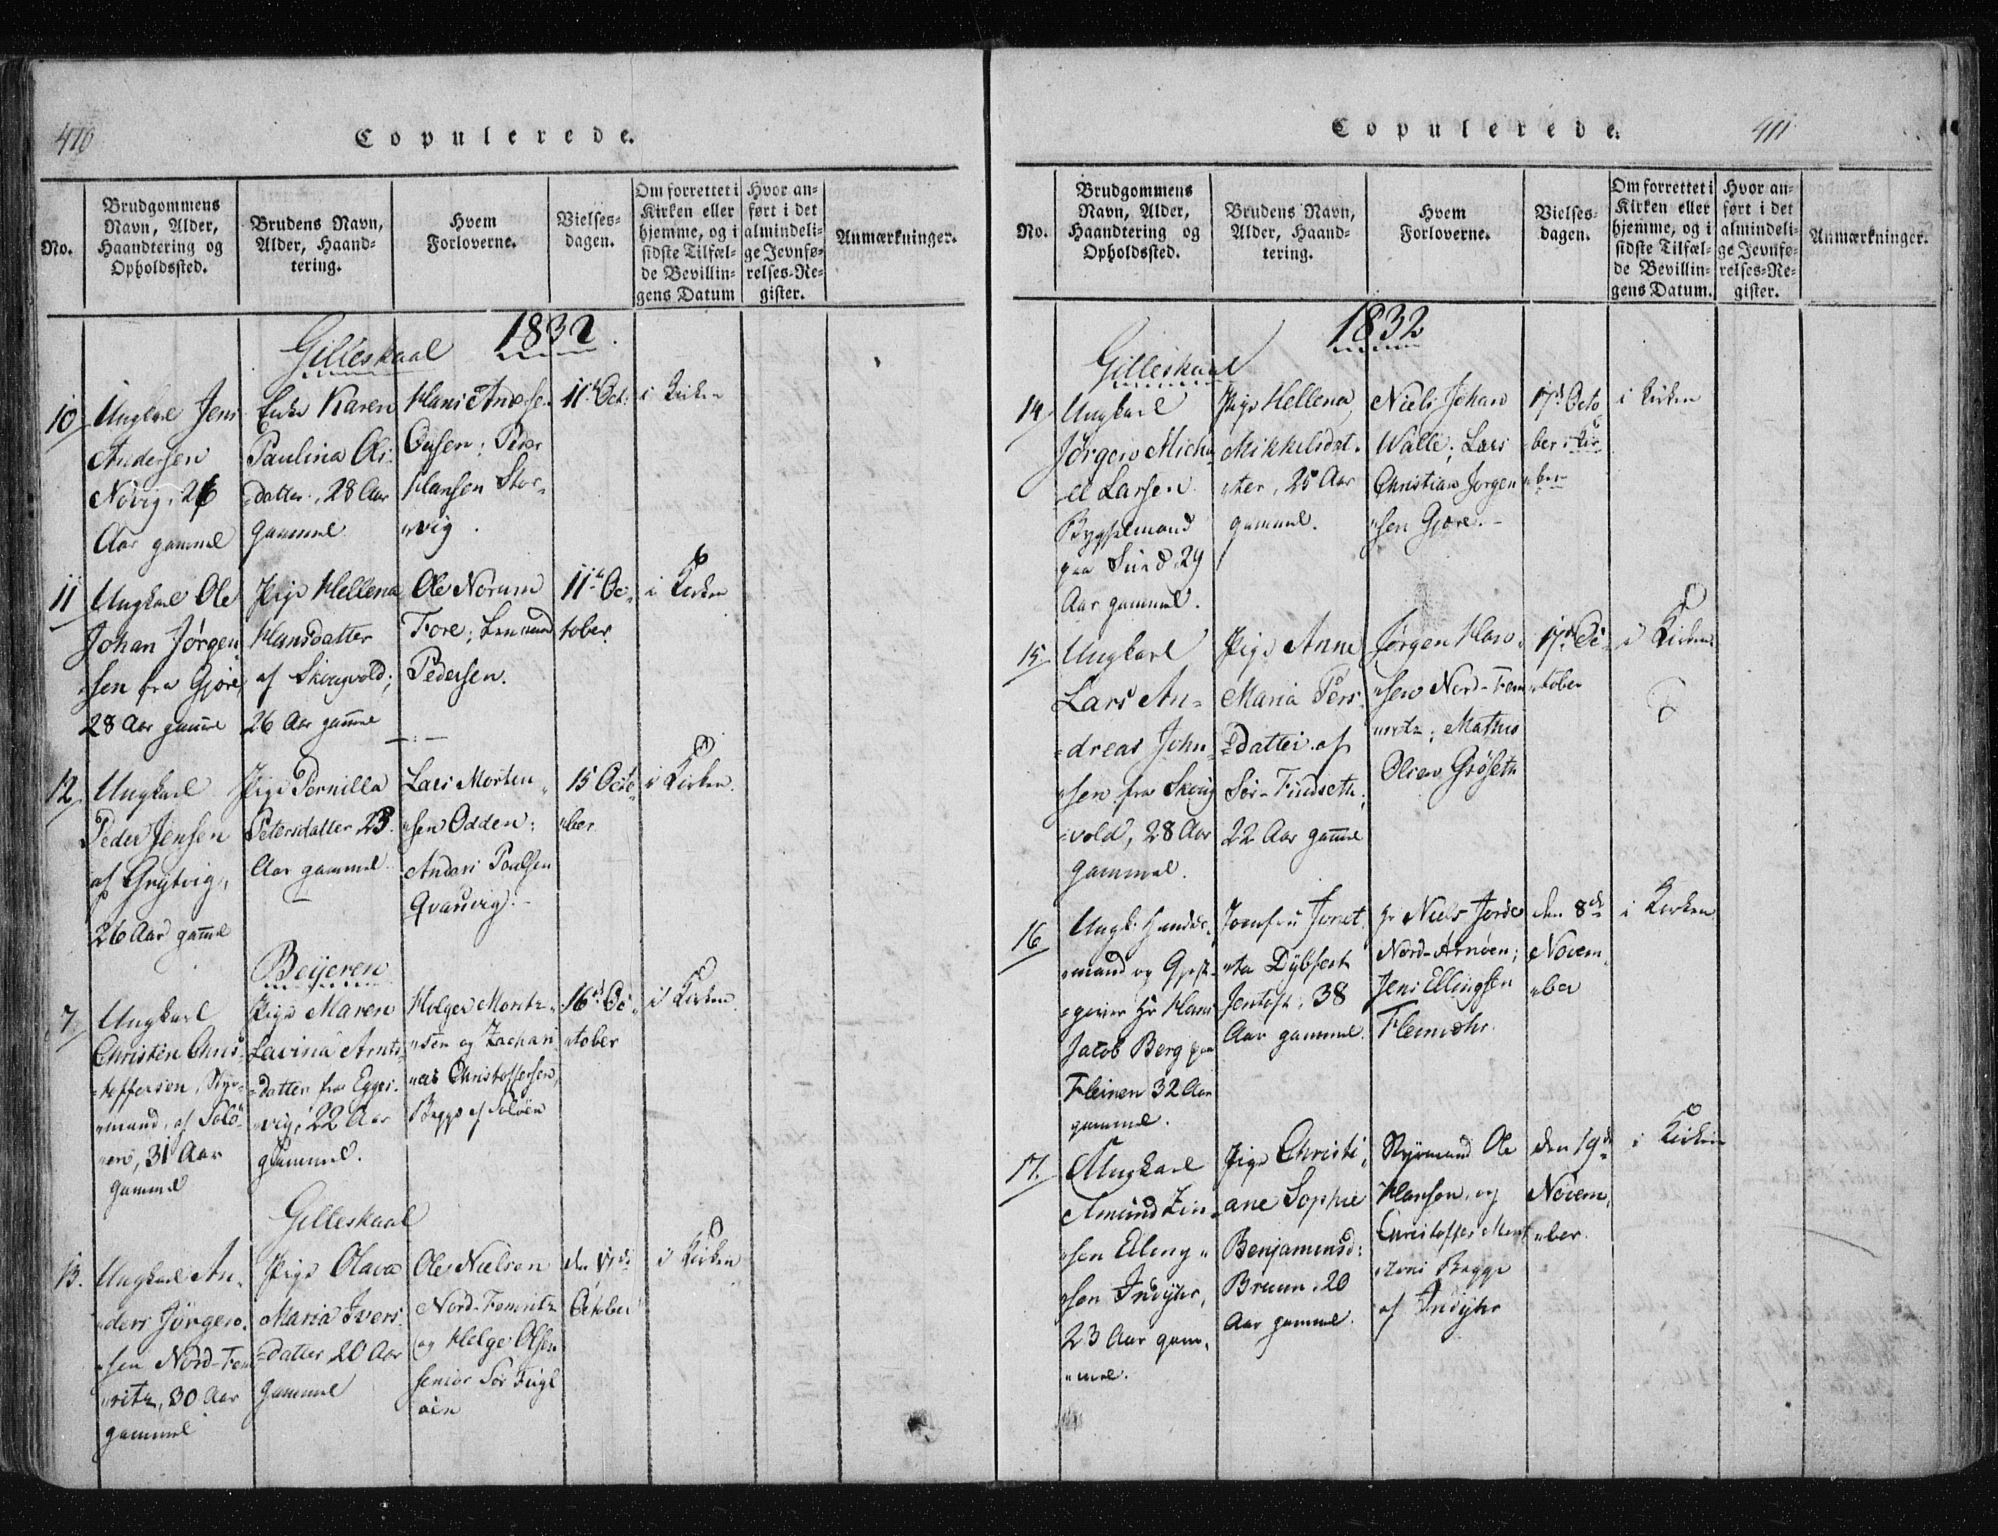 410
Copulerede.
No.
Brudgommens
Navn, Alder,
Haandtering og
Opholdssted.
Brudens Navn,
Alder, Haand-
tering.
Hvem
Forloverne.
Vielses-
dagen.
Om forrettet i
Kirken eller
hjemme, og i
sidste Tilfæl-
de Bevillin-
gens Datum
Hvor an-
ført i det
almindeli-
ge Jevnfø-
relses-Re-
gister.
Anmærkninger.
1832
Gilleskaal
10
Ungkarl Jens
Andersen
Novig, 26
Aar gammel
Enke Karen
Paulina Ols
datter, 28 Aar
gammel
Hans
Peder
Hansen Stor-
vig.
11 Oct.
i Kirken
11
Ungkarl Ole
Johan Jørgen
sen fra Gjøre
28 Aar gamel
Pige Hellena
Hansdatter
af Skougvold;
26 Aar gamel
Ole Norum
Fore;
Pedersen.
11 Oc-
tober
i Kirken
12
Ungkarl
Peder Jensen
af Grytvig,
26 Aar gamel
Pige Pernilla
Petersdatter 23
Aar gammel
Lars Morten
sen Odden;
Anders Poulsen
Qvarsvig.
15 Octo
ber
i Kirken.
Beijeren
7
Ungkarl
Christen Chris-
toffersen, Styr-
mand, af Solö-
en, 31 Aar
gammel
Pige Maren
Lavina Arnts
datter fra Egges-
vig, 22 Aar
gammel.
Holger Moritz-
sen og Zachari
as Christoffersen,
Begge af Soløen
16 Oc
tober
i Kirken
Gilleskaal
13.
Ungkarl An-
ders Jörgen
sen Nord-Fem
ritz, 30 Aar
gammel
Pige Olava
Maria Ivers
datter 20 Aar
gammel
Ole Nielsen
Nord-Femritz
og Helge Olsen
senior Sør Fugl
øen
den 17de
October
i Kirken
411
Copulerede.
No.
Brudgommens
Navn, Alder,
Haandtering og
Opholdssted.
Brudens Navn,
Alder, Haand-
tering.
Hvem
Forloverne.
Vielses-
dagen.
Om forrettet i
Kirken eller
hjemme, og i
sidste Tilfæl-
de Bevillin-
gens Datum.
Hvor an-
ført i det
almindeli-
ge Jevnfø-
relses-Re-
gister.
Anmærkninger.
1832
Gilleskaal
14
Ungkarl
Jørgen Micha
el Larsen
Bygselmand
paa Sund, 29
Aar gammel.
Pige Hellena
Mikkelsdat-
ter, 25 Aar
gammel.
Niels Johan
Walle; Lars
Christian Jørgen
sen Gjøre.
17d Octo
ber
i Kirken
15
Ungkarl
Lars An-
dreas John-
sen fra Skoug
vold, 28 Aar
gammel.
Pige Anne
Maria Pers
datter af
Sør-Findseth;
22 Aar gamel
Jørgen Han-
sen Nord-Fem
ritz; Mathis
Olsen Grøseth
17d Oc
tober
i Kirken
16
Ungk. Handels-
mand og Gjest-
giver Hr Hans
Jacob Berg paa
Fleinen 32 Aar
gammel.
Jomfru Jonet
ta Dybfest
Jentoft, 38
Aar gammel.
Hr Niels Jorde
Nord-Arnøen;
Jens Ellingsen
Fleinøhr.
den 8de
Novem
ber
i Kirken
17.
Ungkarl
Amund
sen
sen Indyhr,
23 Aar gam-
mel.
Pige Christi
ane Sophie
Benjaminsd:
Bruun, 20
Aar gammel.
Styrmand Ole
Hansen, og
Christoffer
Begge
af Indyhr
den 19de
Novem
ber.
i Kirken